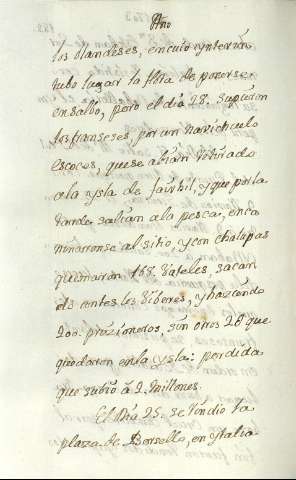 Año
los olandeses, en cuio ynterin
tubo lugar la flota de ponerse
en salbo, pero el dia 28. supieron
los franseses por un navichuelo
escoces, que se abian retirado
a la ysla de
, y que por la
tarde salian a la pesca, enca
minaronse al sitio, y con chalupas
quemaron 168. bateles, sacan
do antes los biberes, y haziendo
200. prizioneros, sin otros 28 que
quedaron en la ysla: perdida
que subio â 2. millones.
El Dia 25. se rindio la
plaza de Berselli, en ytalia